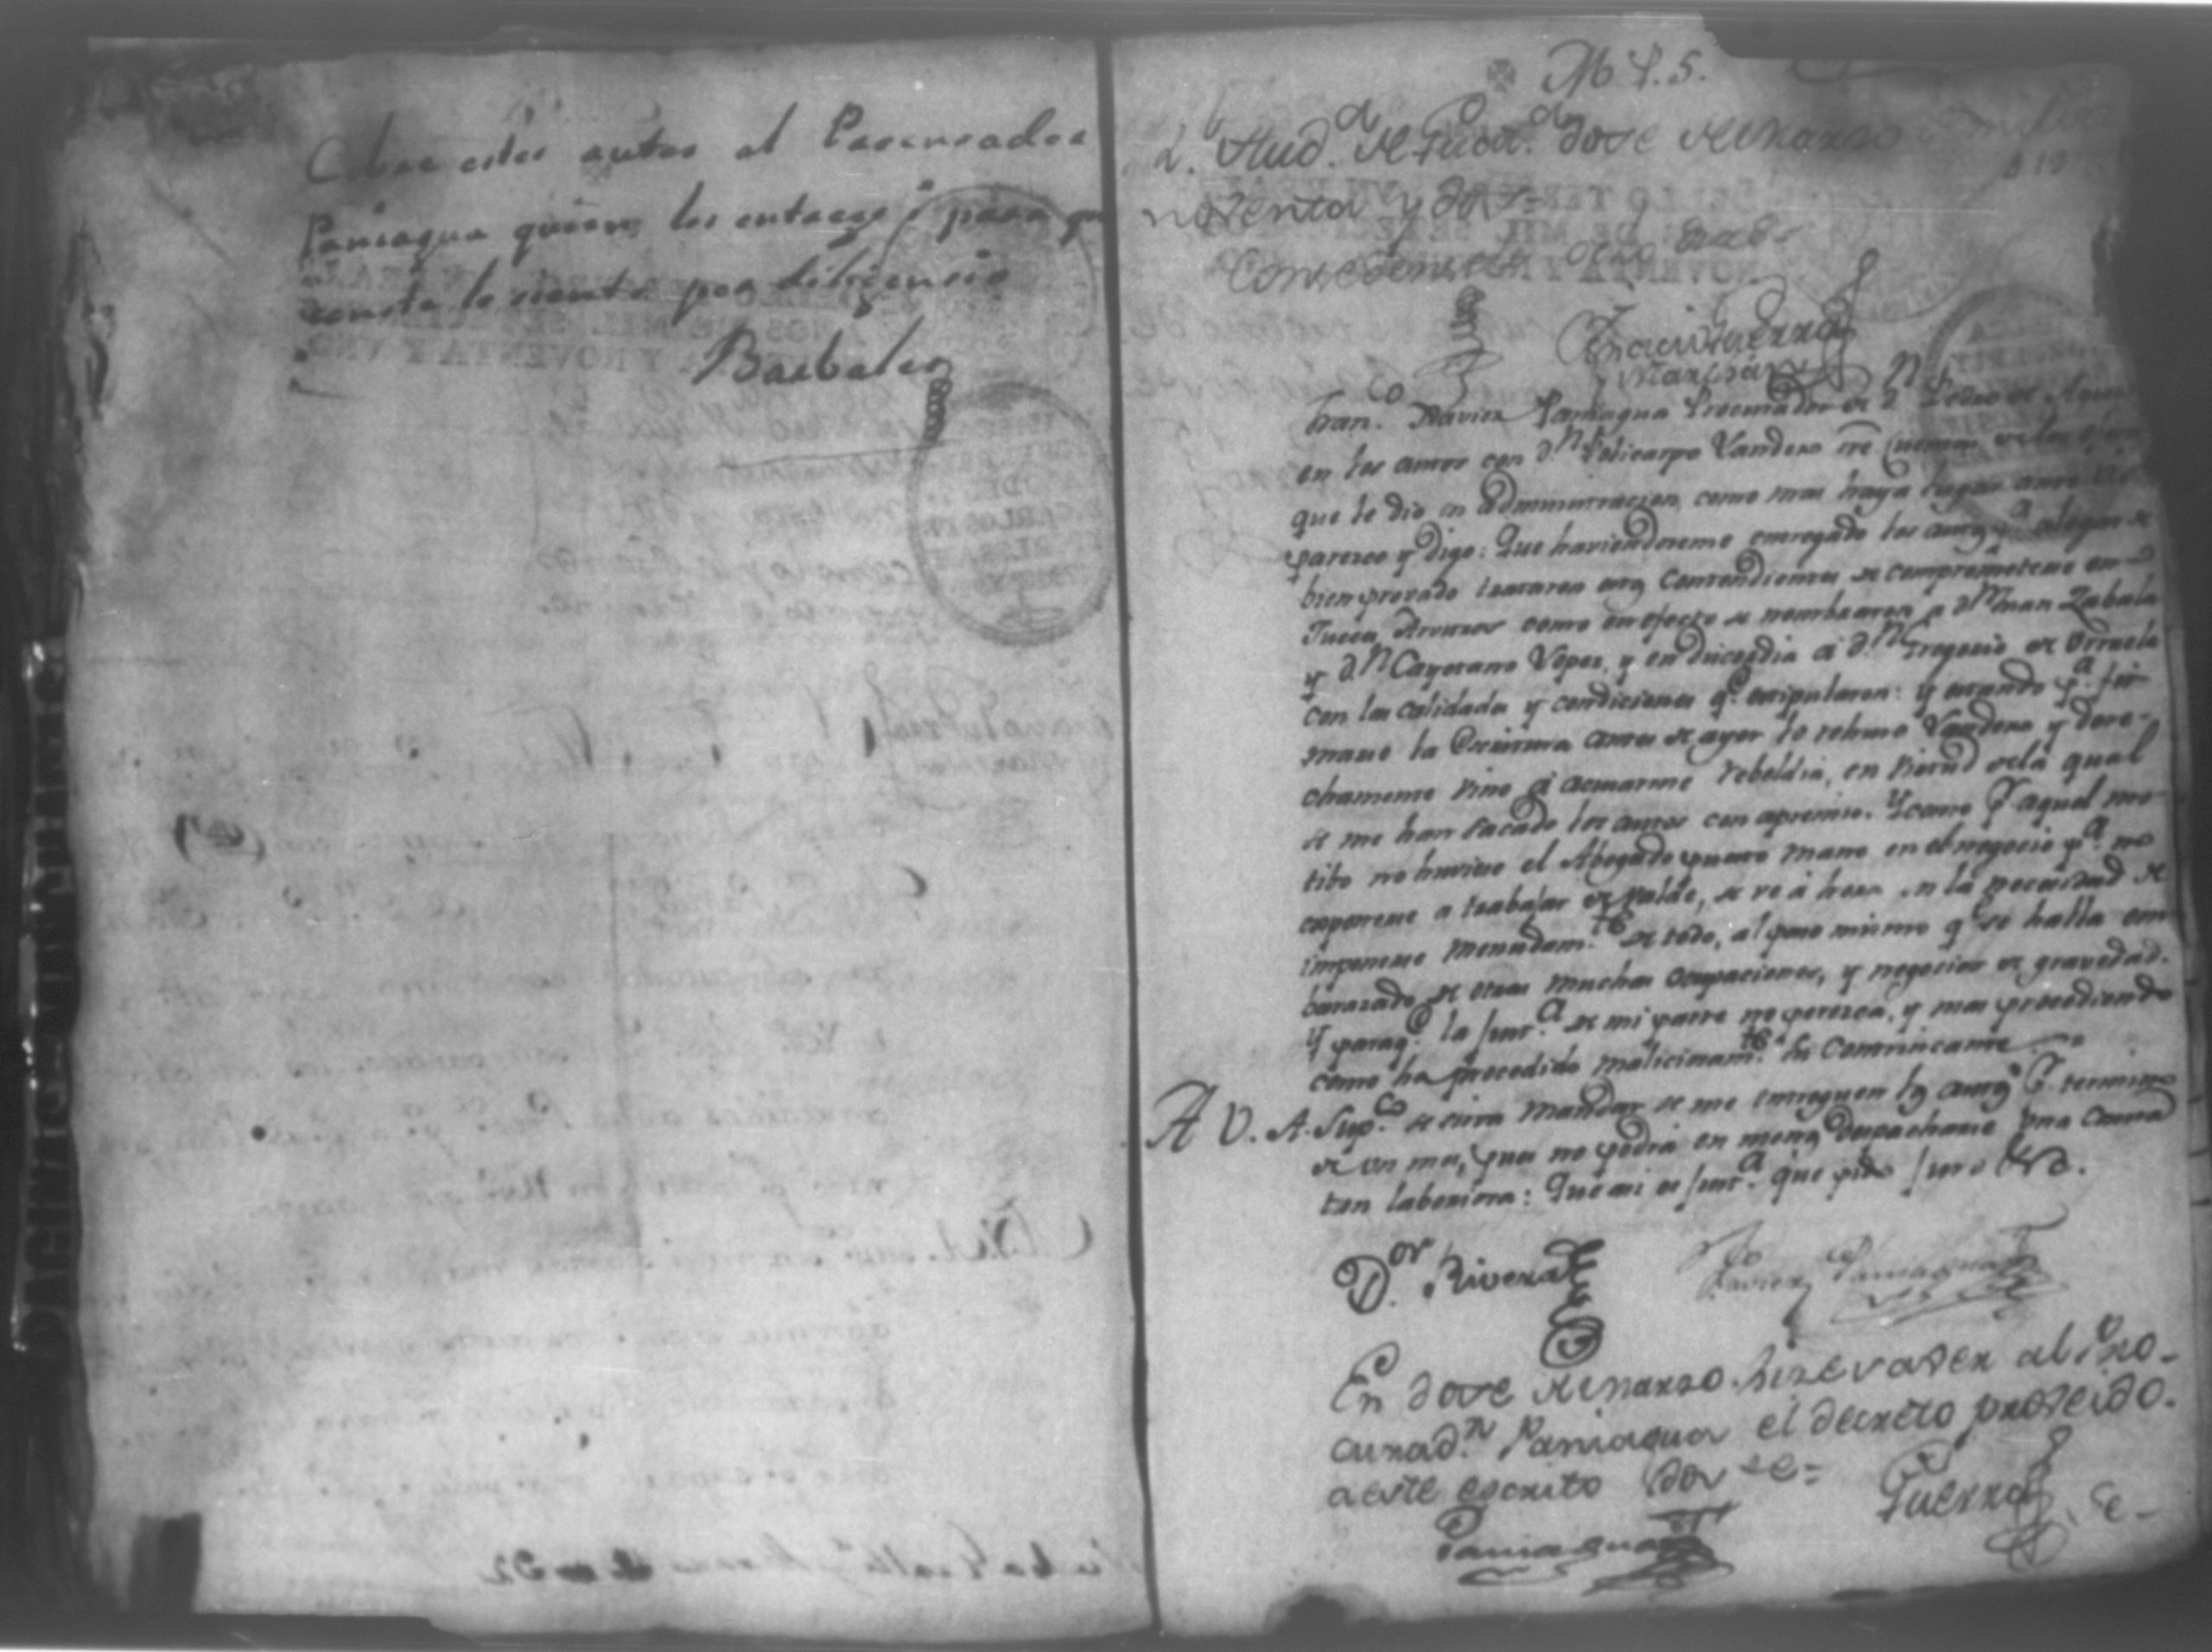 Cobre estos autos al Procurador
Paniagua quien los entregó i para qe
conste lo siento por diligencia
Barbales
M P. S.
R. Aud.a de Guat.a dose de Marzo
noventa y dos=
Concedensele ocho dias
Ignacio Guerra
Marchán
Fran.co Xavier Paniagua Procurador de D.n Pedro de
en los autos con d.n Policarpo Vandero sre cuentas de los
que le dio en administracion, como mas haya lugar ante
paresco y digo: Que haviendoseme entregado los autos p.a alegar de
bien provado trataron ntos Contendientes de comprometerse en
Jueces Arvitros como en efecto se nombraron a d.n Juan Zabala
y d.n Cayetano Yepes, y en discordia á d.n Gregorio de Urruela
con las calidades y condiciones q.e estipularon: y estando p.a fir-
marse la Escritura antes de ayer lo rehuso Vandero y dere-
chamente vino á acusarme rebeldia, en virtud dela qual
se me han sacado los autos con apremio. Y como p.r aquel mo-
tibo no huviese el Abogado puesto mano en el negocio p.a no
exponerse a trabajar de valde, se ve á hora en la necesidad de
imponerse menudam.te de todo, al paso mismo q.e se halla em-
barazado de otras muchas ocupaciones, y negocios de gravedad.
Y paraq.e la just.a de mi parte no peresca, y mas procediendo
como ha procedido maliciosam.te su Contrincante =
A V. A. Sup.co se sirva mandar se me entreguen los autos p.r termino
de un mes, pues no podrá en menos despacharse una causa
tan laboriosa: Que asi es just.a que pido juro &a.
D.or Rivera
Fco Xavier Paniagua
En dose de Marzo hise vaser al Pro-
curad.r Paniagua el decreto proveido
aeste escrito doy fe=
Paniagua
Guerra